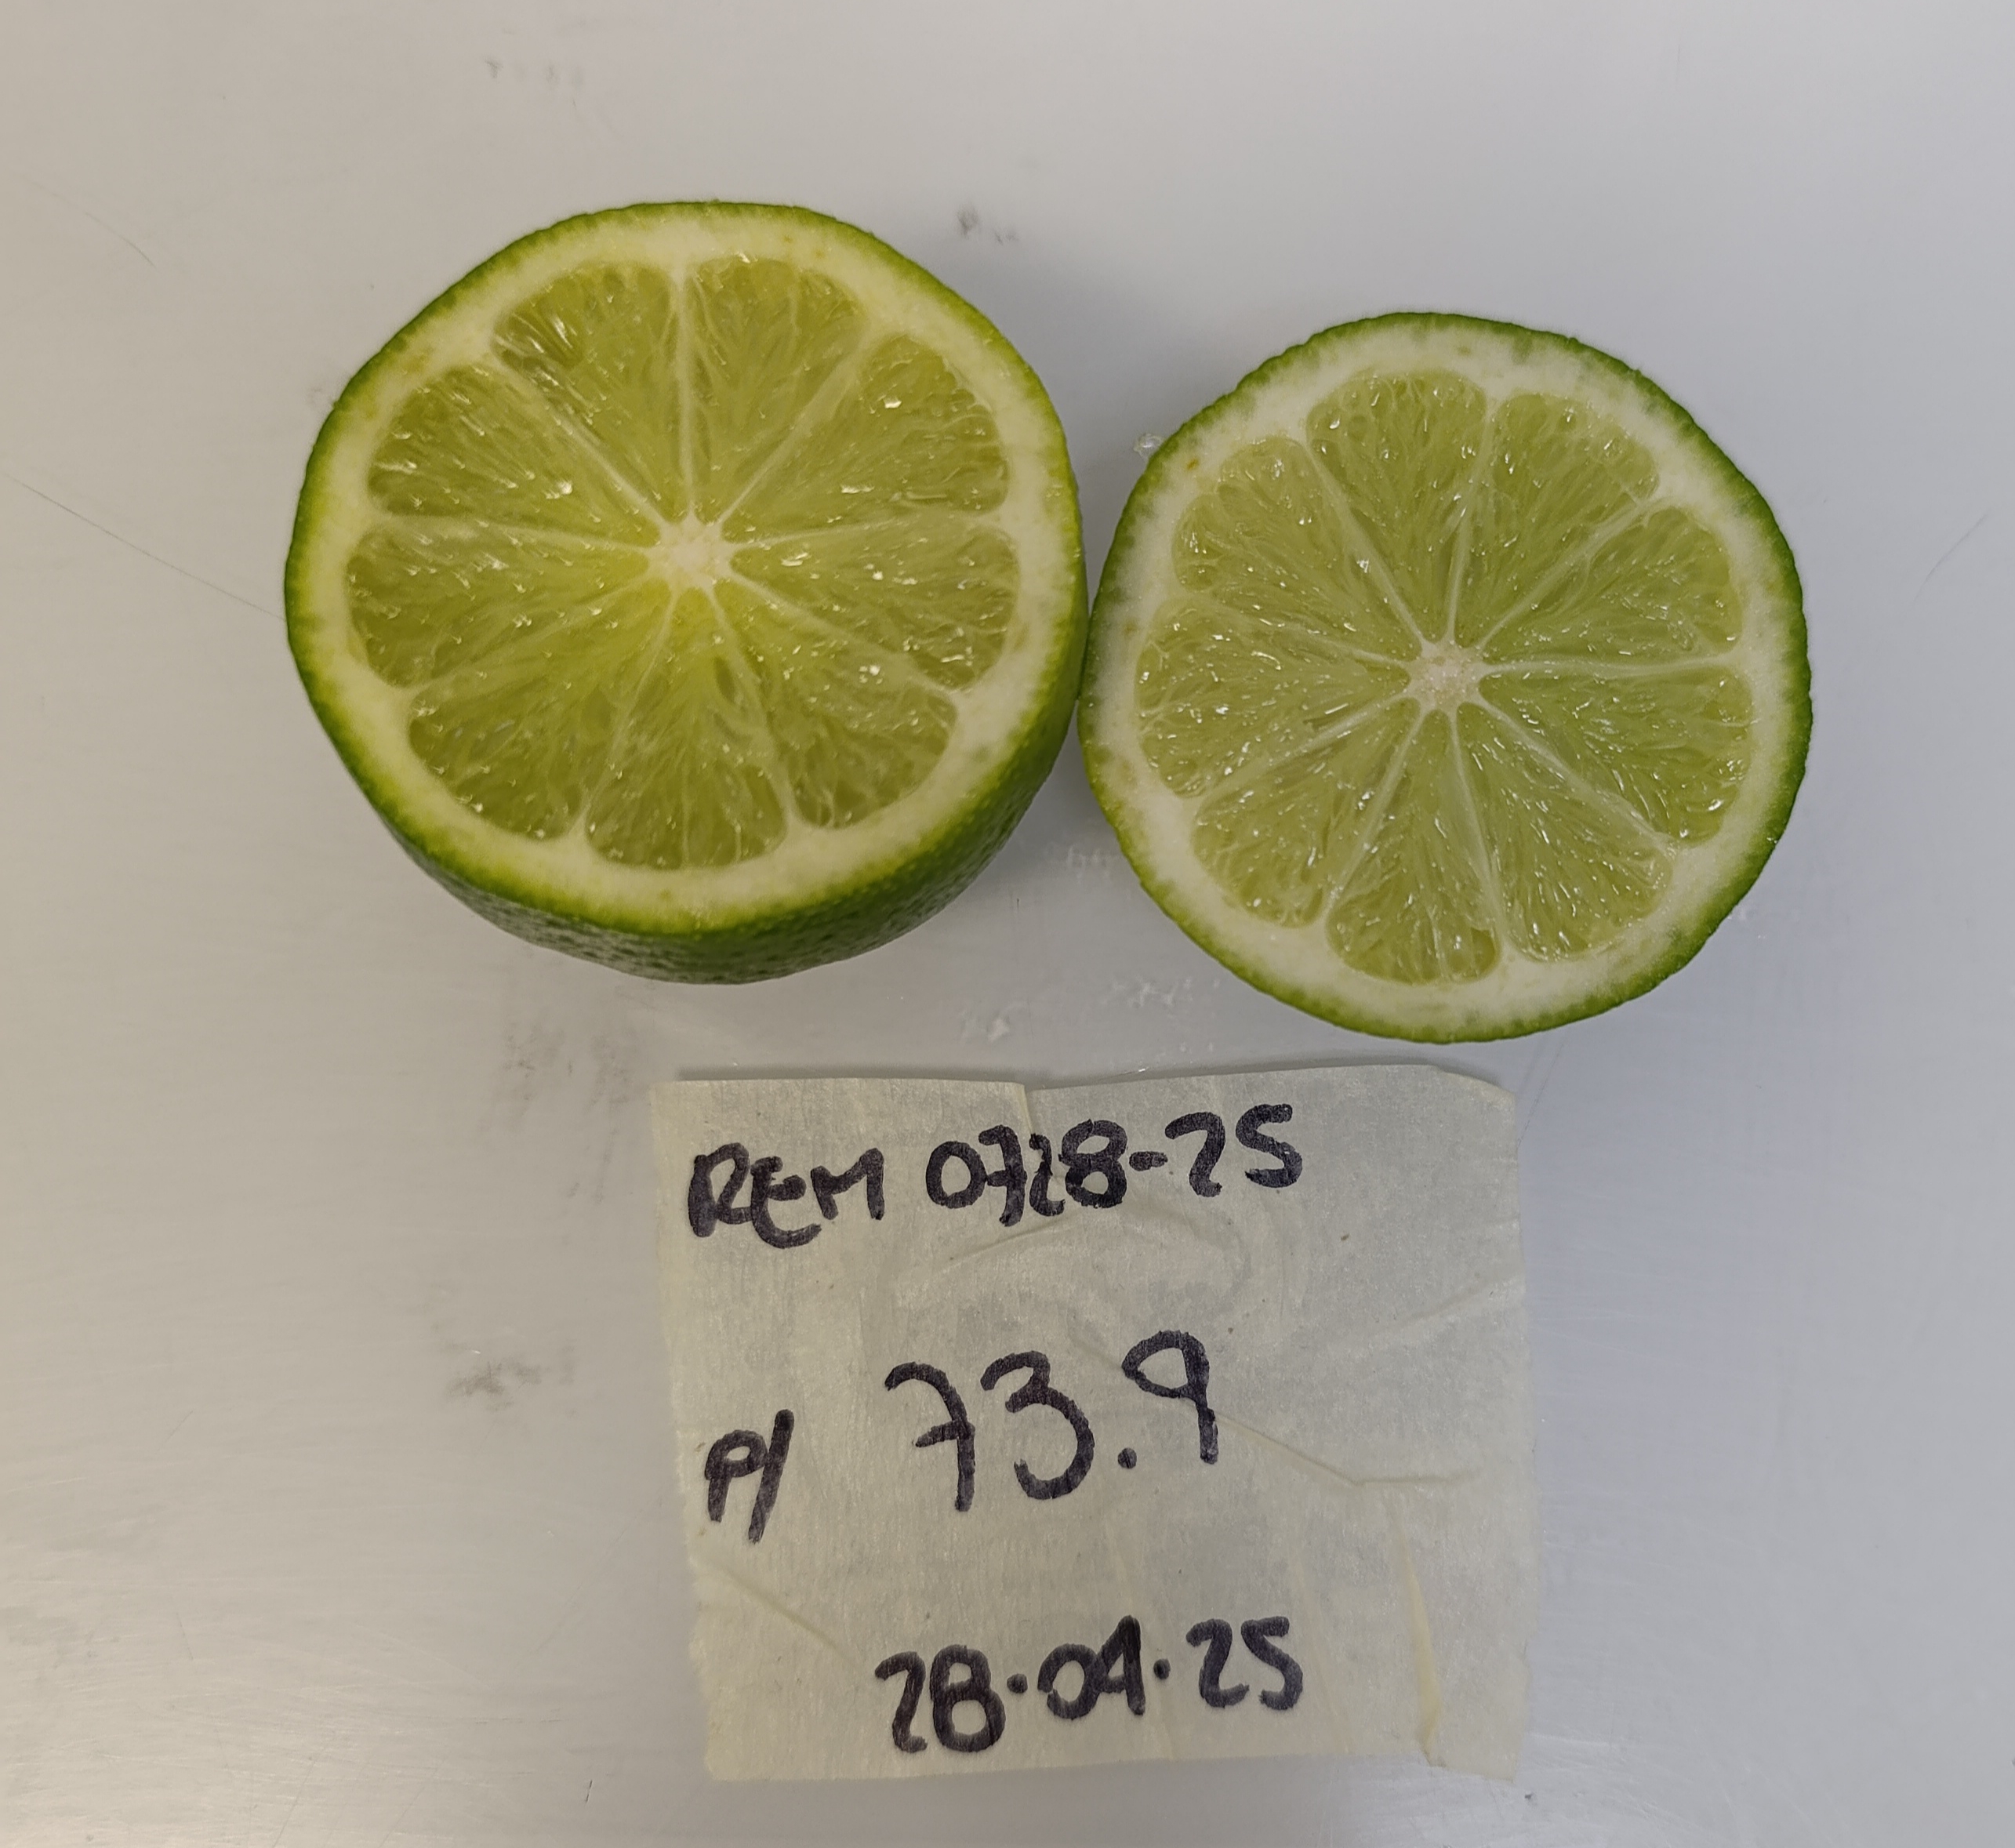 REM 0728-25
P/ 73.9
28.04.25